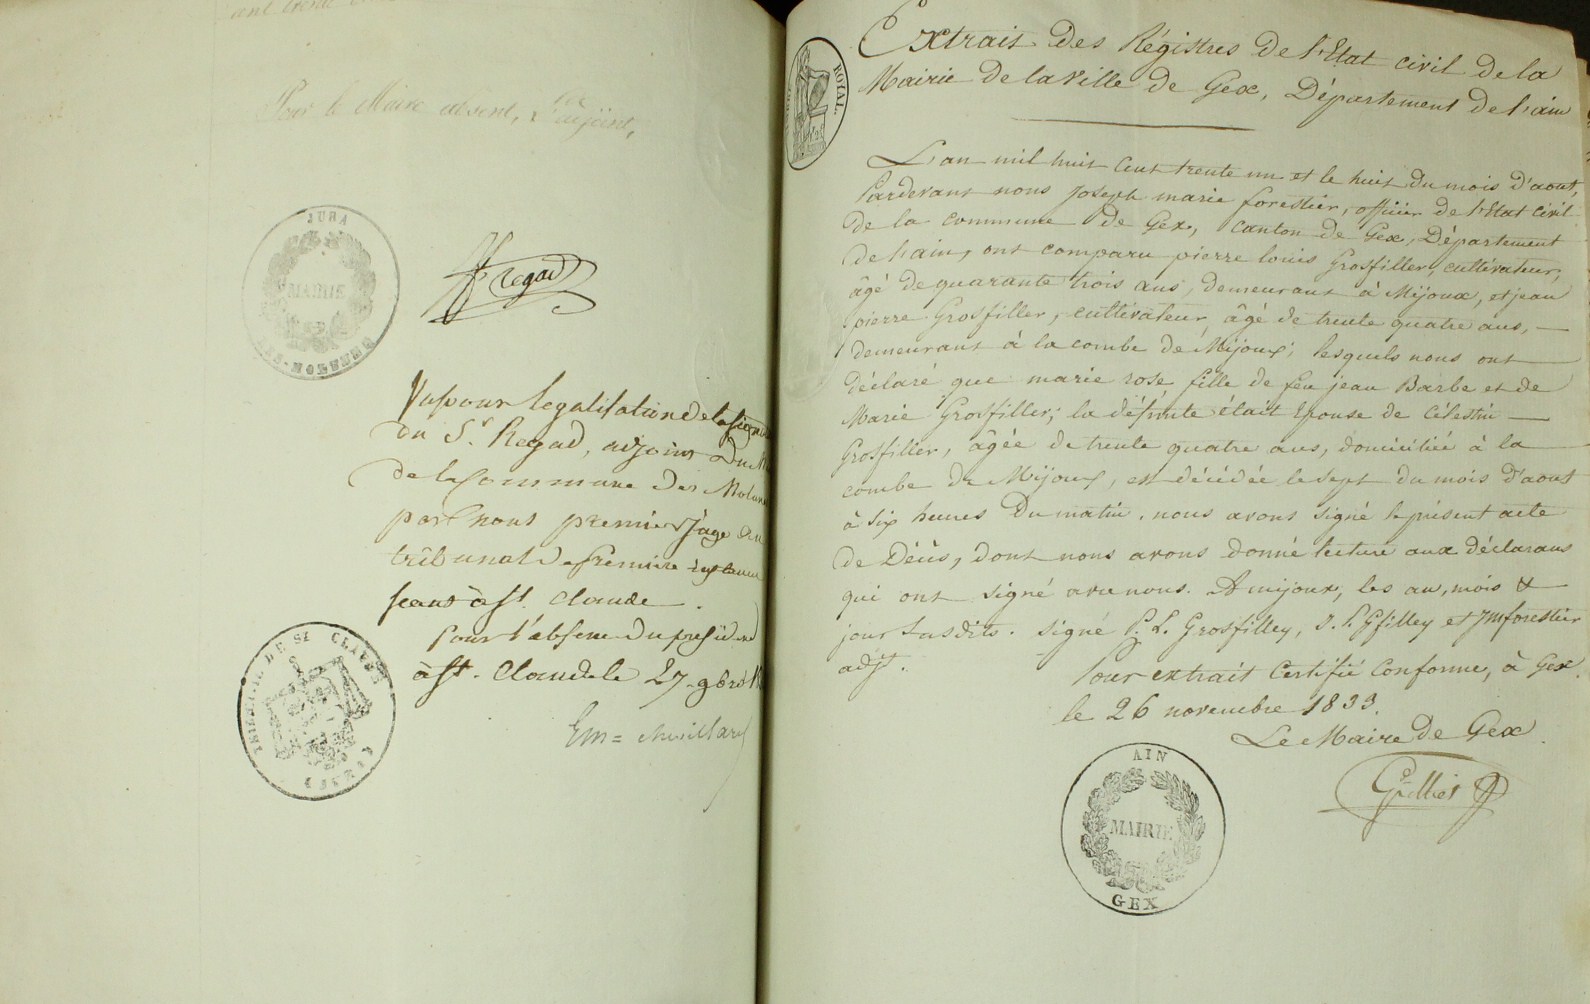 Pour le Maire absent, L'adjoint,
JURA
MAIRIE
LES-MOLUNES
Regad
Vu pour legalisation de la signature
du Sr. Regad, adjoint Du Maire
de la Commune des Molunes
par nous premier Juge au
tribunal De Premiere instance
seant à St. Claude.
pour l'absence du président
à St. Claude le 27 9bre
TRIBUNAL DE St CLAUDE
Extrait des Régistres de l'Etat civil de la
Mairie de la Ville de Gex, Département de l'ain
ROYAL.
L'an mil huit cent trente un et le huit du mois d'aout,
Pardevant nous Joseph marie forestier, officier de l'Etat civil
de la commune de Gex, canton de Gex, Département
de l'ain, ont comparu pierre louis Grosfiller, cultivateur,
âgé de quarante trois ans, demeurant à Mijoux, et jean
pierre Grosfiller, cultivateur, âgé de trente quatre ans,
demeurant à la combe de Mijoux; lesquels nous ont
déclaré que marie rose fille de feu jean Barbe et de
Marie Grosfiller; la défunte était Epouse de célestin
Grosfiller, âgée de trente quatre ans, domiciliée à la
combe de Mijoux, est décédée le sept du mois d'aout
à six heures Du matin. nous avons signé le présent acte
de Décès, dont nous avons donné lecture aux déclarans
qui ont signé avec nous. A mijoux, les an, mois &
jour susdits. signé P. L. Grosfilley, J. P. Gfilley et JMforestier
adjt.
Pour extrait Certifié Conforme, à Gex.
le 26 novembre 1833.
Le Maire de Gex
AIN
MAIRIE
GEX